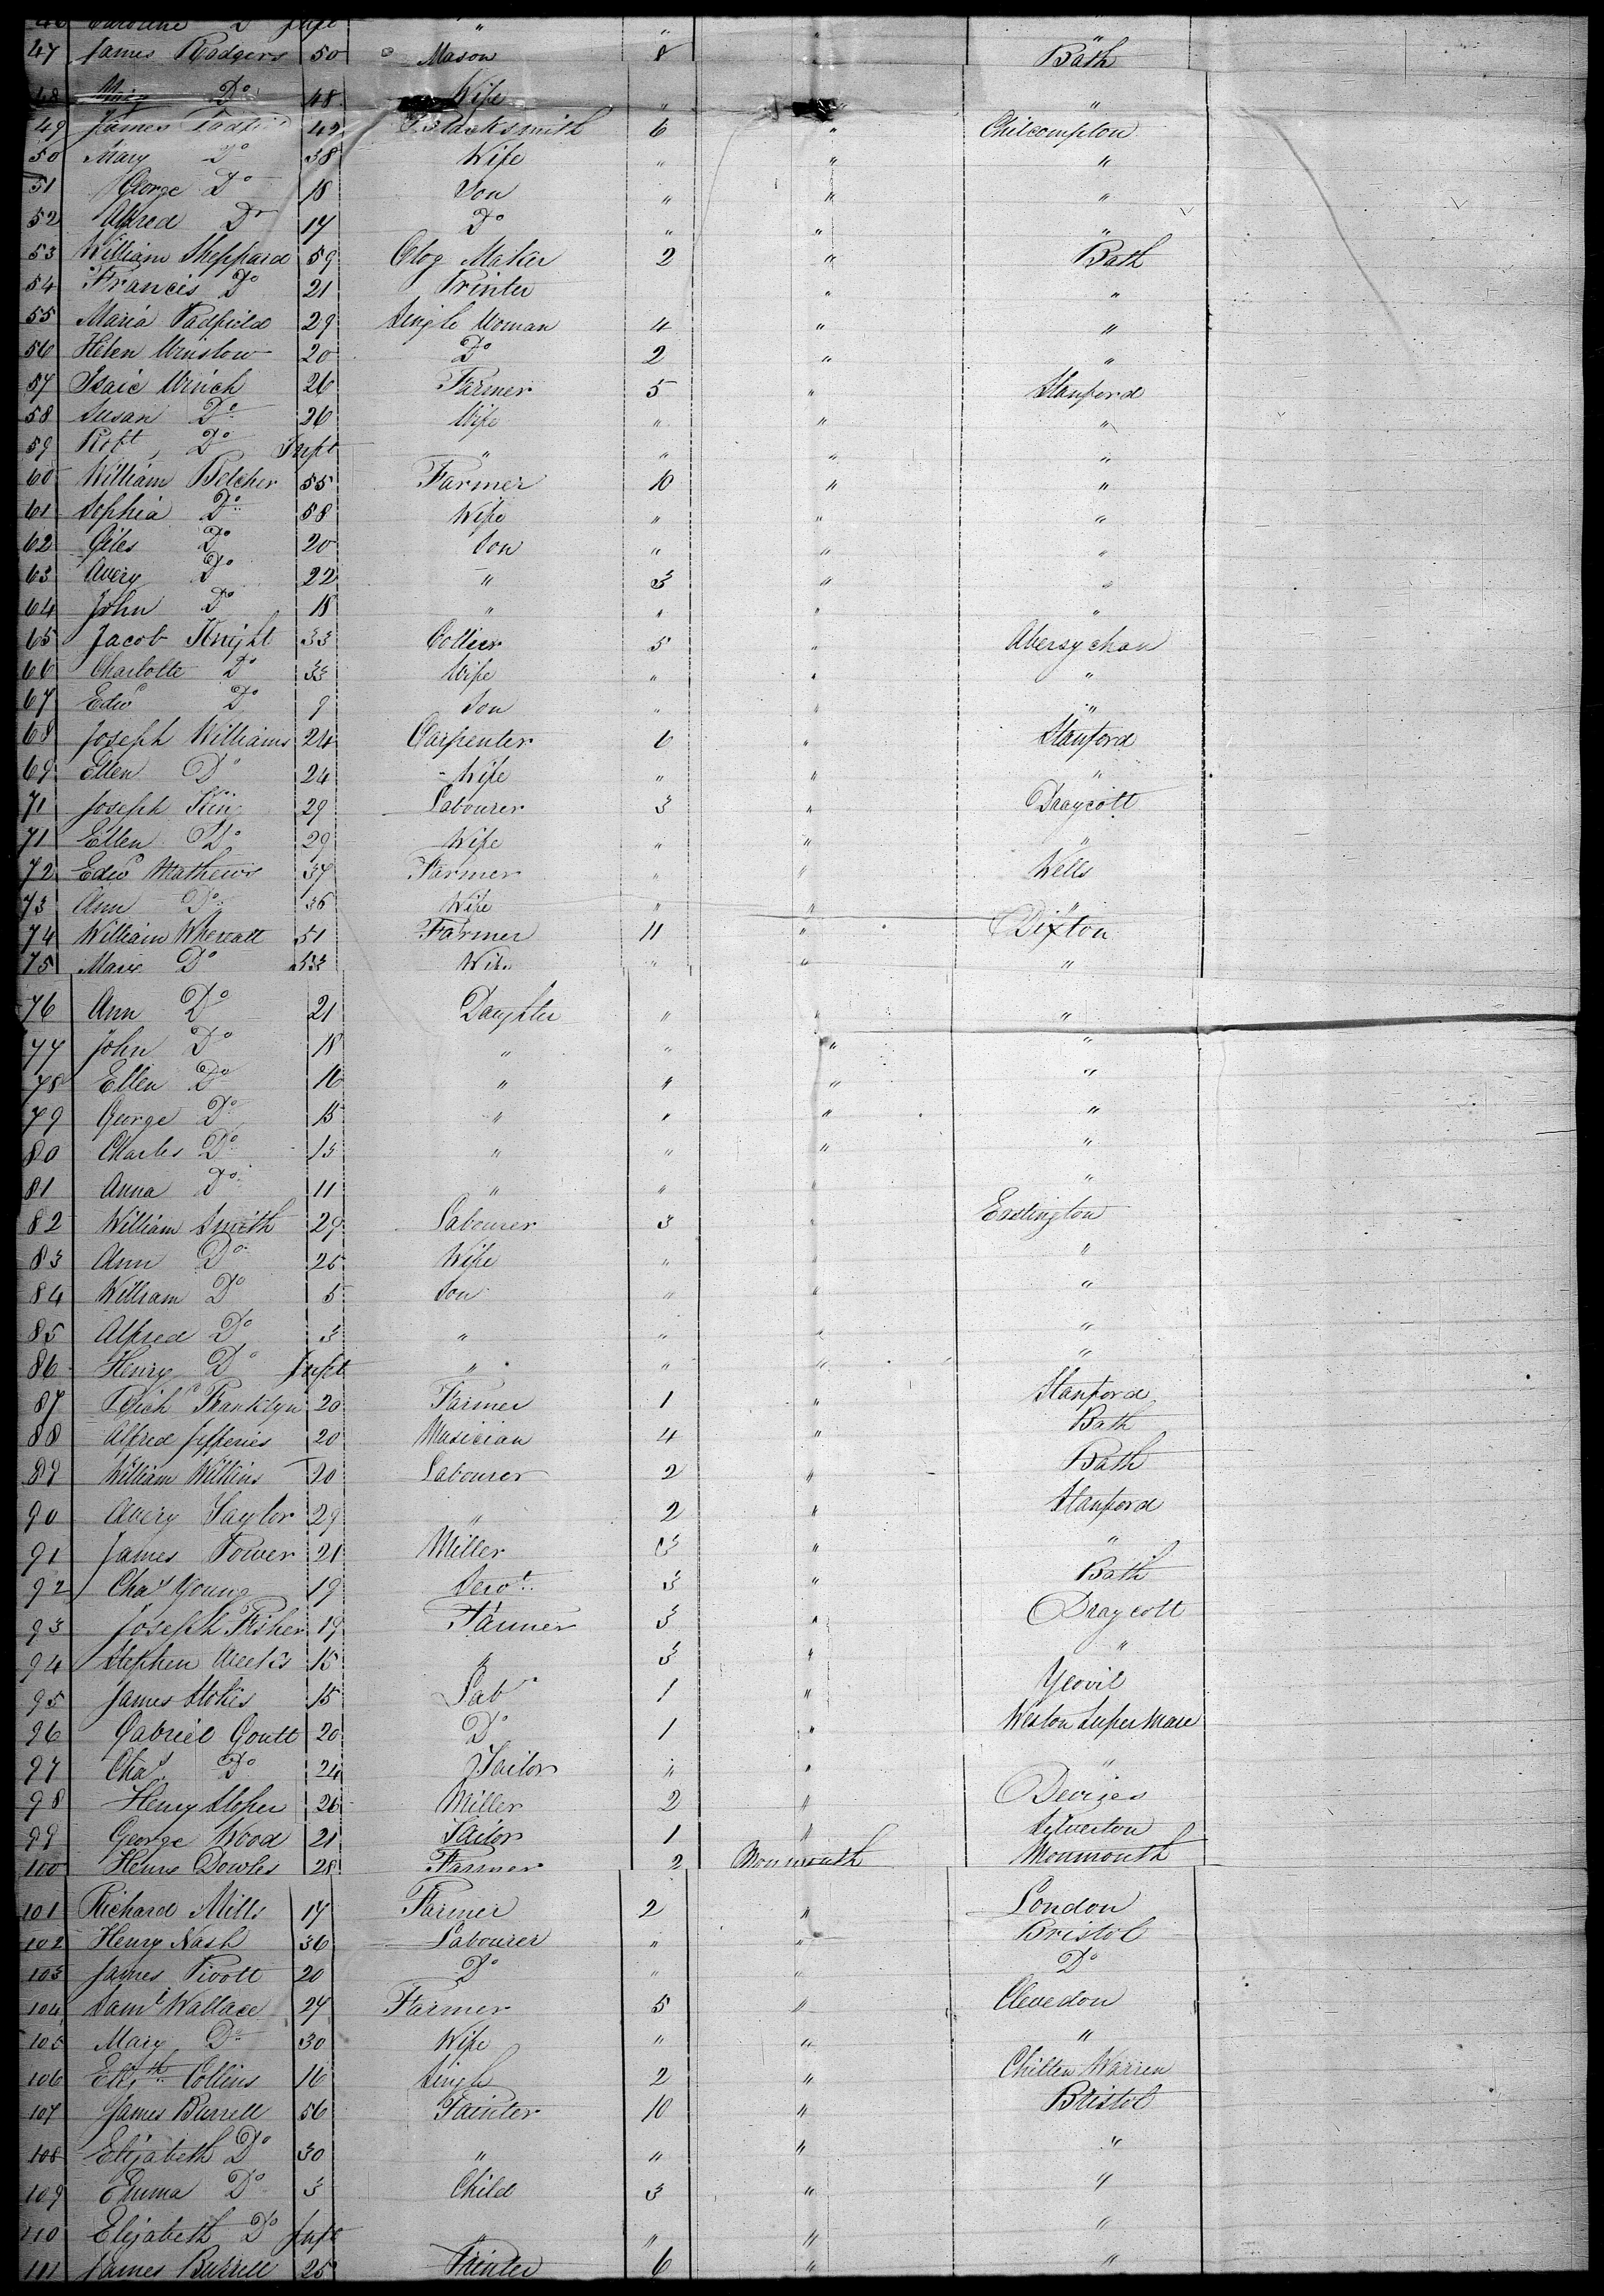 46 Caroline Do Inft " " "
47 James Rodgers 50 Mason 8 " Bath
48 Mary Do 48 Wife " " "
49 James Padfi 42 Blacksmith 6 " Chilcompton
50 Mary Do 38 Wife " " "
51 George Do 18 Son " " "
52 Alfred Do 17 Do " " "
53 William Sheppard 59 Clog Maker 2 " Bath
54 Francis Do 21 Printer " "
55 Maria Padfield 29 Single Woman 4 " "
56 Helen Winslow 20 Do 2 " "
57 Isaic Winch 26 Farmer 5 " Stanford
58 Susan Do 26 Wife " " "
59 Robt Do Inft " " " "
60 William Belcher 55 Farmer 10 " "
61 Sophia Do 58 Wife " " "
62 Giles Do 20 Son " " "
63 Avery Do 22 " 3 " "
64 John Do 18 " " " "
65 Jacob Knight 33 Collier 5 " Abersychan
66 Charlotte Do 33 Wife " " "
67 Edwd Do 9 Son " " "
68 Joseph Williams 24 Carpenter 6 " Stanford
69 Ellen Do 24 Wife " " "
71 Joseph King 29 Labourer 3 " Draycott
71 Ellen Do 29 Wife " " "
72 Edwd Mathews 37 Farmer " " Wells
73 Ann Do 36 Wife " " "
74 William Wherratt 51 Farmer 11 " Dixton
75 Mary Do 53 Wife " " "
76 Ann Do 21 Daughter " " "
77 John Do 18 " " " "
78 Ellen Do 16 " " " "
79 George Do 15 " " " "
80 Charles Do 13 " " " "
81 Anna Do 11 " " " "
82 William Smith 29 Labourer 3 " Eastington
83 Ann Do 26 Wife " " "
84 William Do 5 Son " " "
85 Alfred Do 3 " " " "
86 Henry Do Inft " " " "
87 Richd Franklyn 20 Farmer 1 " Stanford
88 Alfred Jefferies 20 Musician 4 " Bath
89 William Willins 20 Labourer 2 " Bath
90 Avery Taylor 29 " 2 " Stanford
91 James Power 21 Miller 3 " "
92 Chas Young 19 Servt 3 " Bath
93 Joseph Fisher 19 Farmer 3 " Draycott
94 Stephen Weeks 15 " 3 " "
95 James Stokes 15 Labr 1 " Yeovil
96 Gabriel Goutt 20 Do 1 " Weston Super Mare
97 Chas Do 24 Tailor " " "
98 Henry Sloper 26 Miller 2 " Devizes
99 George Wood 21 Tailor 1 " Silverton
100 Henry Dowles 28 Farmer 2 Monmouth Monmouth
101 Richard Mills 17 Farmer 2 " London
102 Henry Nash 36 Labourer " " Bristol
103 James Pivott 20 Do " " Do
104 Saml Wallace 27 Farmer 5 " Clevedon
105 Mary Do 30 Wife " " "
106 Elizth Collins 16 Single 2 " Chilten Warren
107 James Burrell 56 Painter 10 " Bristol
108 Elizabeth Do 30 " " " "
109 Emma Do 3 Child 3 " "
110 Elizabeth Do Inft " " " "
111 James Burrell 25 Printer 6 " "